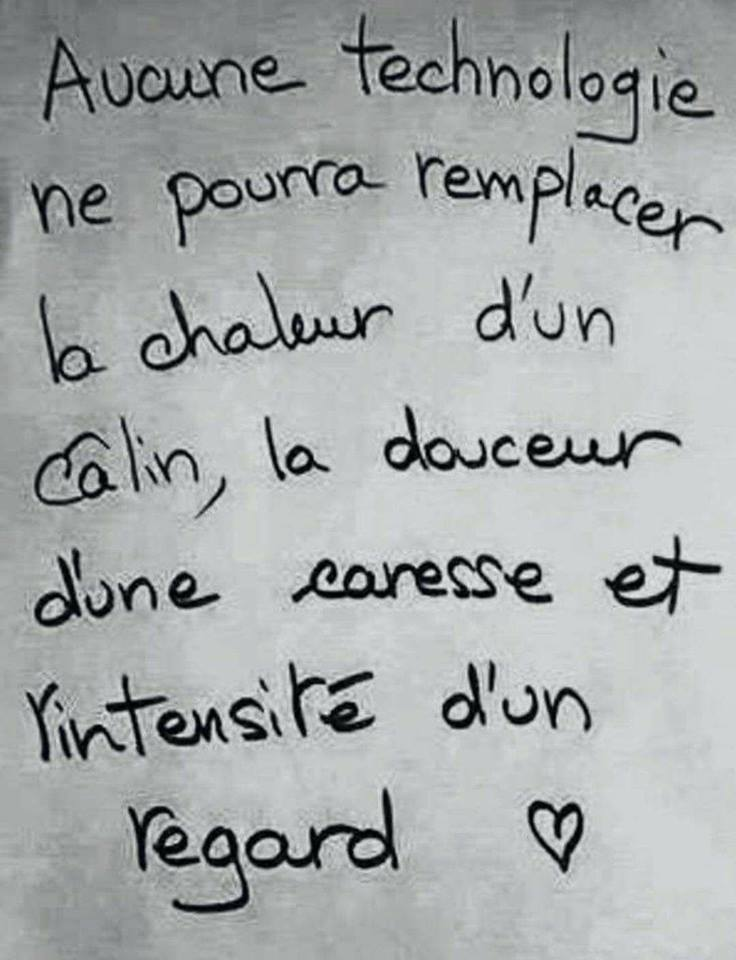 Aucune technologie
ne pourra remplacer
la chaleur d'un
câlin, la douceur
d'une caresse et
l'intensité d'un
regard ♡